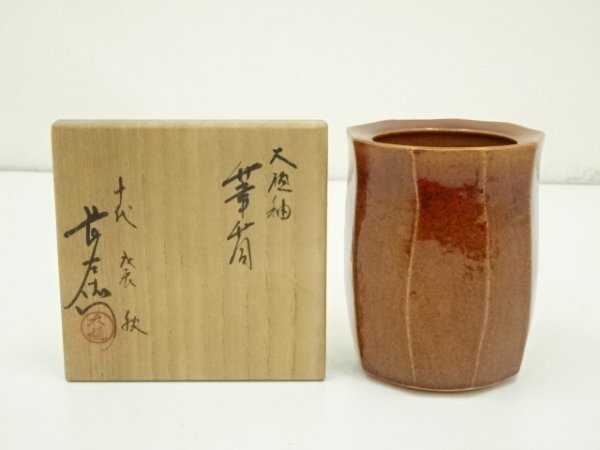 大樋釉
筆筒
十代
戊辰 秋
長左衛門
大樋